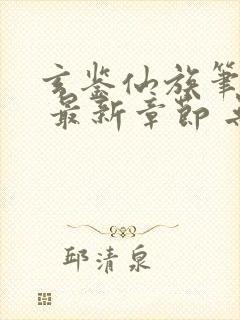 玄鉴仙族笔
最新章节
邱清泉